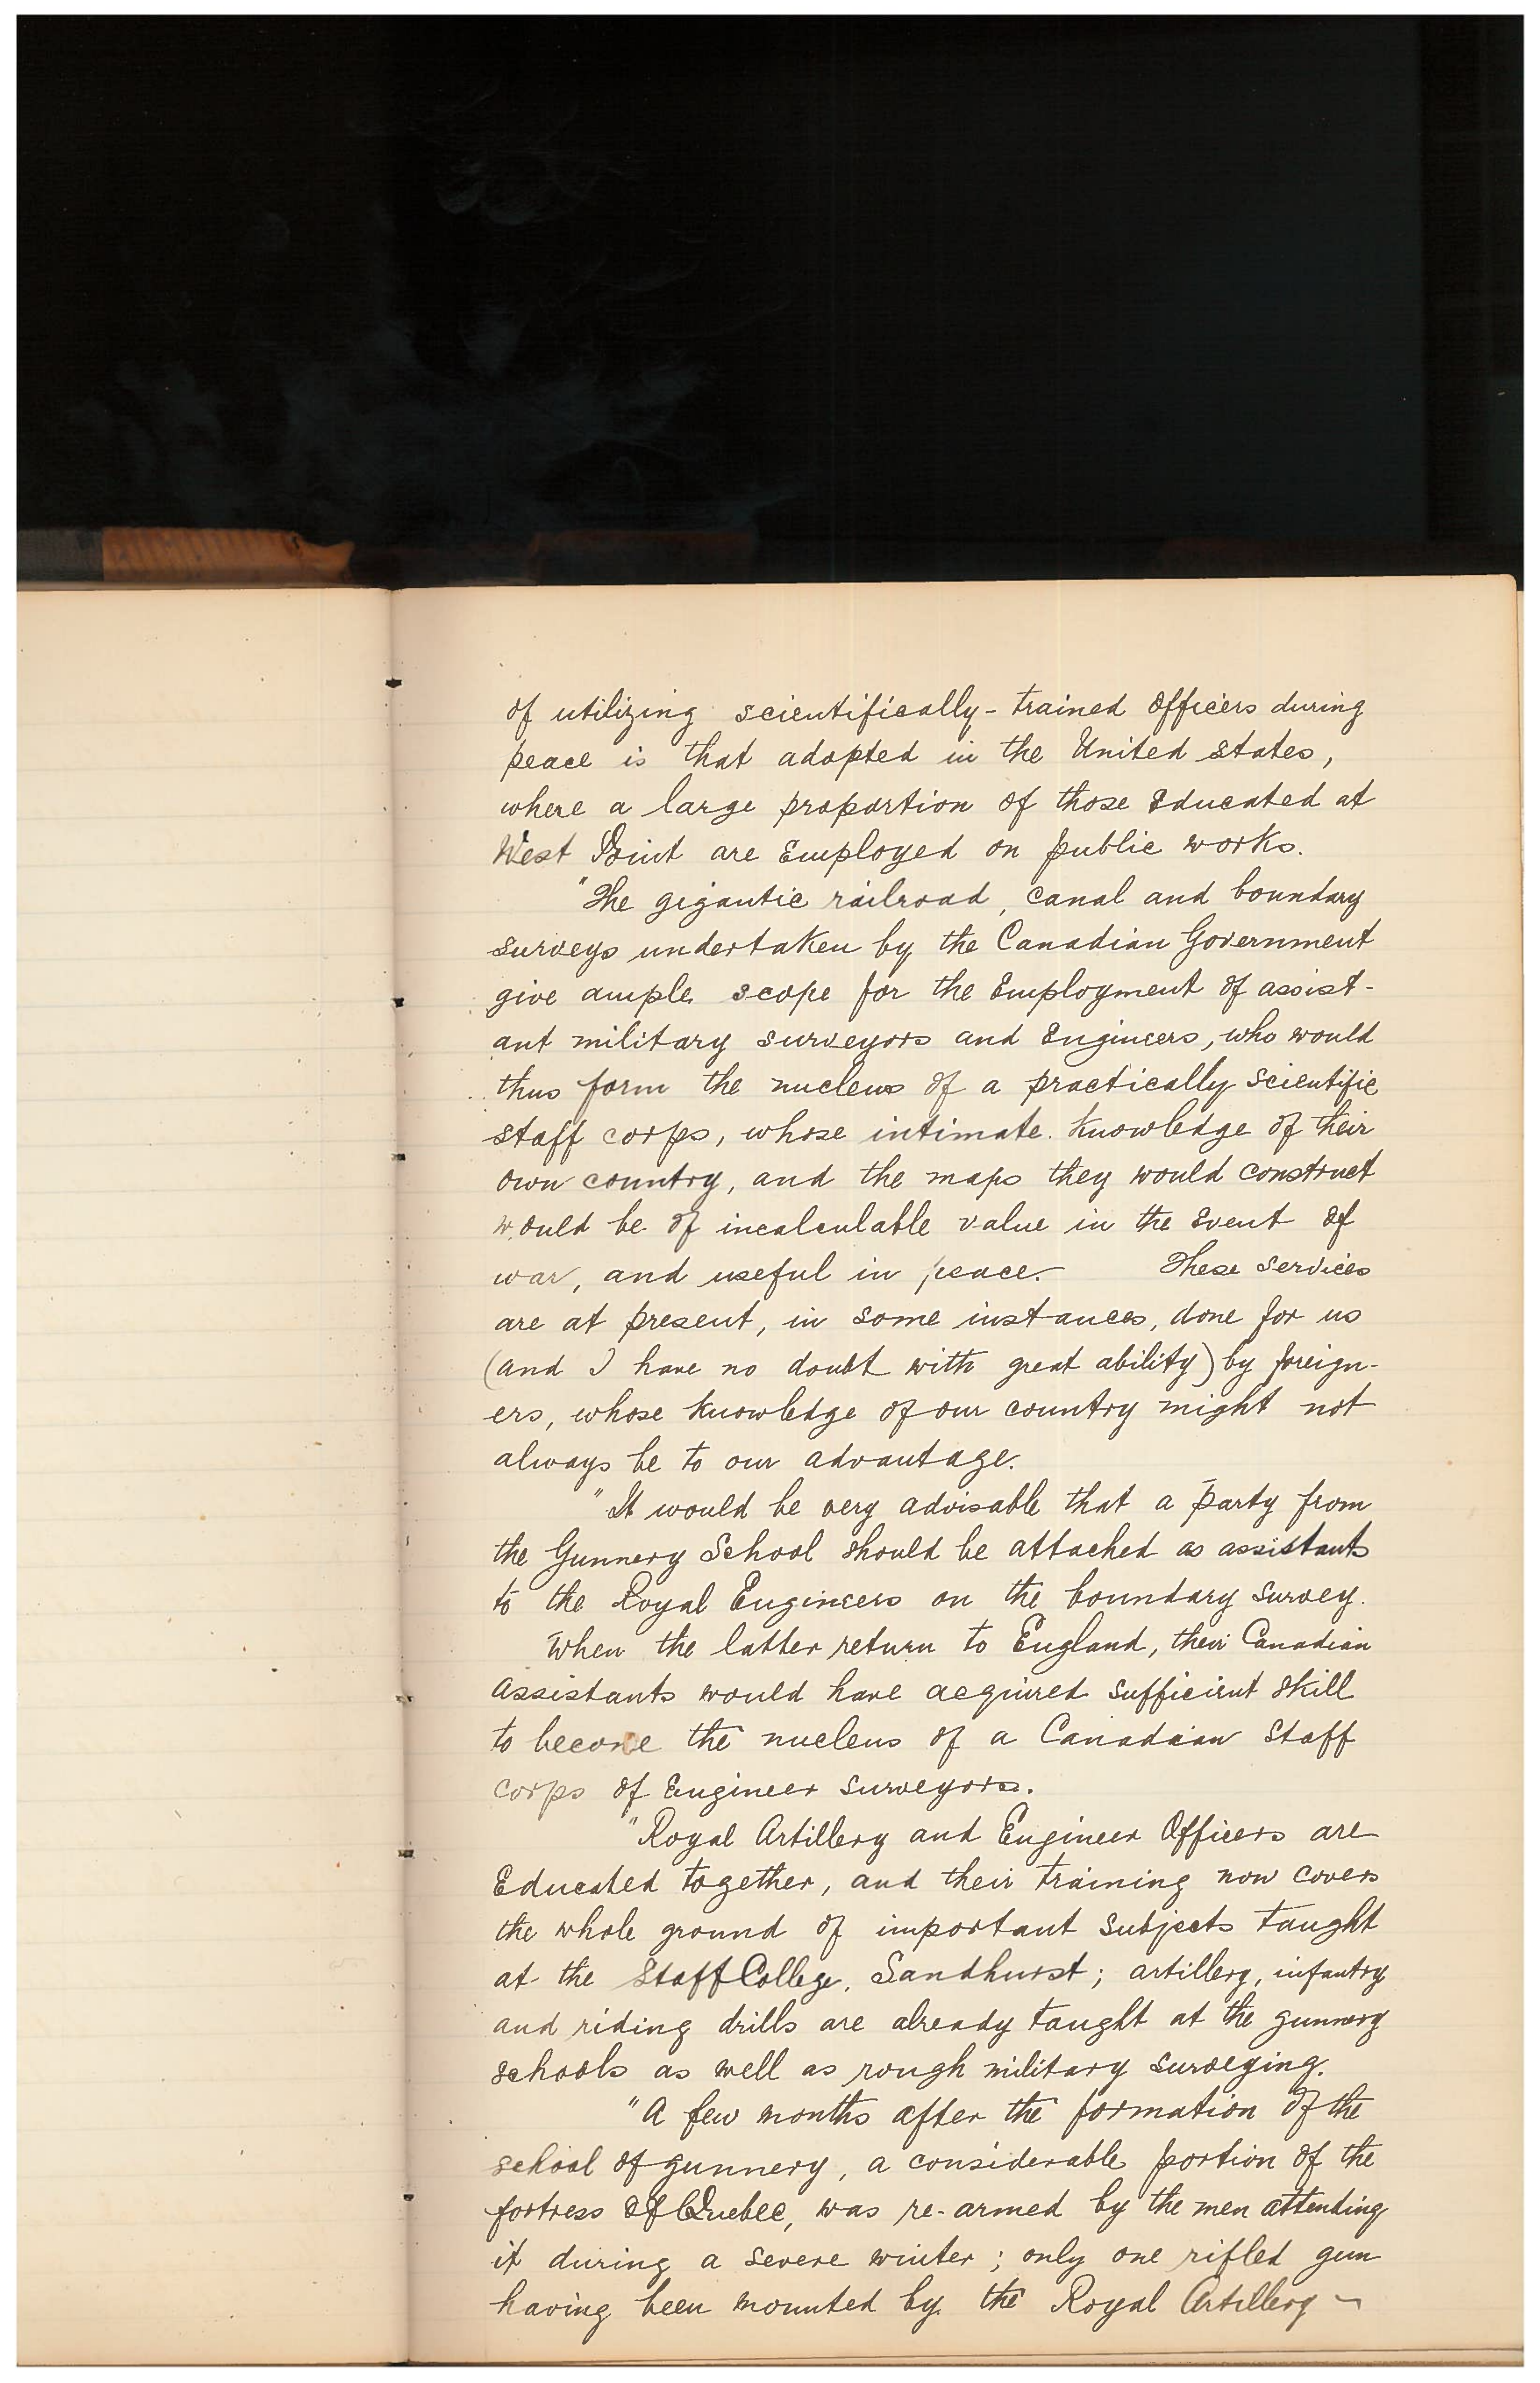 of utilizing scientifically-trained Officers during
peace is that adopted in the United States,
where a large proportion of those Educated at
West Point are Employed on public works.
"The gigantic railroad, canal and boundary
surveys undertaken by the Canadian Government
give ample scope for the Employment of assist-
ant military surveyors and Engineers, who would
thus form the nucleus of a practically scientific
staff corps, whose intimate knowledge of their
own country, and the maps they would construct
would be of incalculable value in the Event of
war, and useful in peace. These services
are at present, in some instances, done for us
(and I have no doubt with great ability) by foreign-
ers, whose knowledge of our country might not
always be to our advantage.
"It would be very advisable that a party from
the Gunnery School should be attached as assistants
to the Royal Engineers on the boundary survey.
When the latter return to England, their Canadian
assistants would have acquired sufficient skill
to become the nucleus of a Canadian Staff
corps of Engineer surveyors.
"Royal Artillery and Engineer Officers are
Educated together, and their training now covers
the whole ground of important subjects taught
at the Staff College, Sandhurst; artillery, infantry
and riding drills are already taught at the gunnery
schools as well as rough military surveying.
"A few months after the formation of the
school of gunnery, a considerable portion of the
fortress of Quebec, was re-armed by the men attending
it during a severe winter; only one rifled gun
having been mounted by the Royal Artillery -